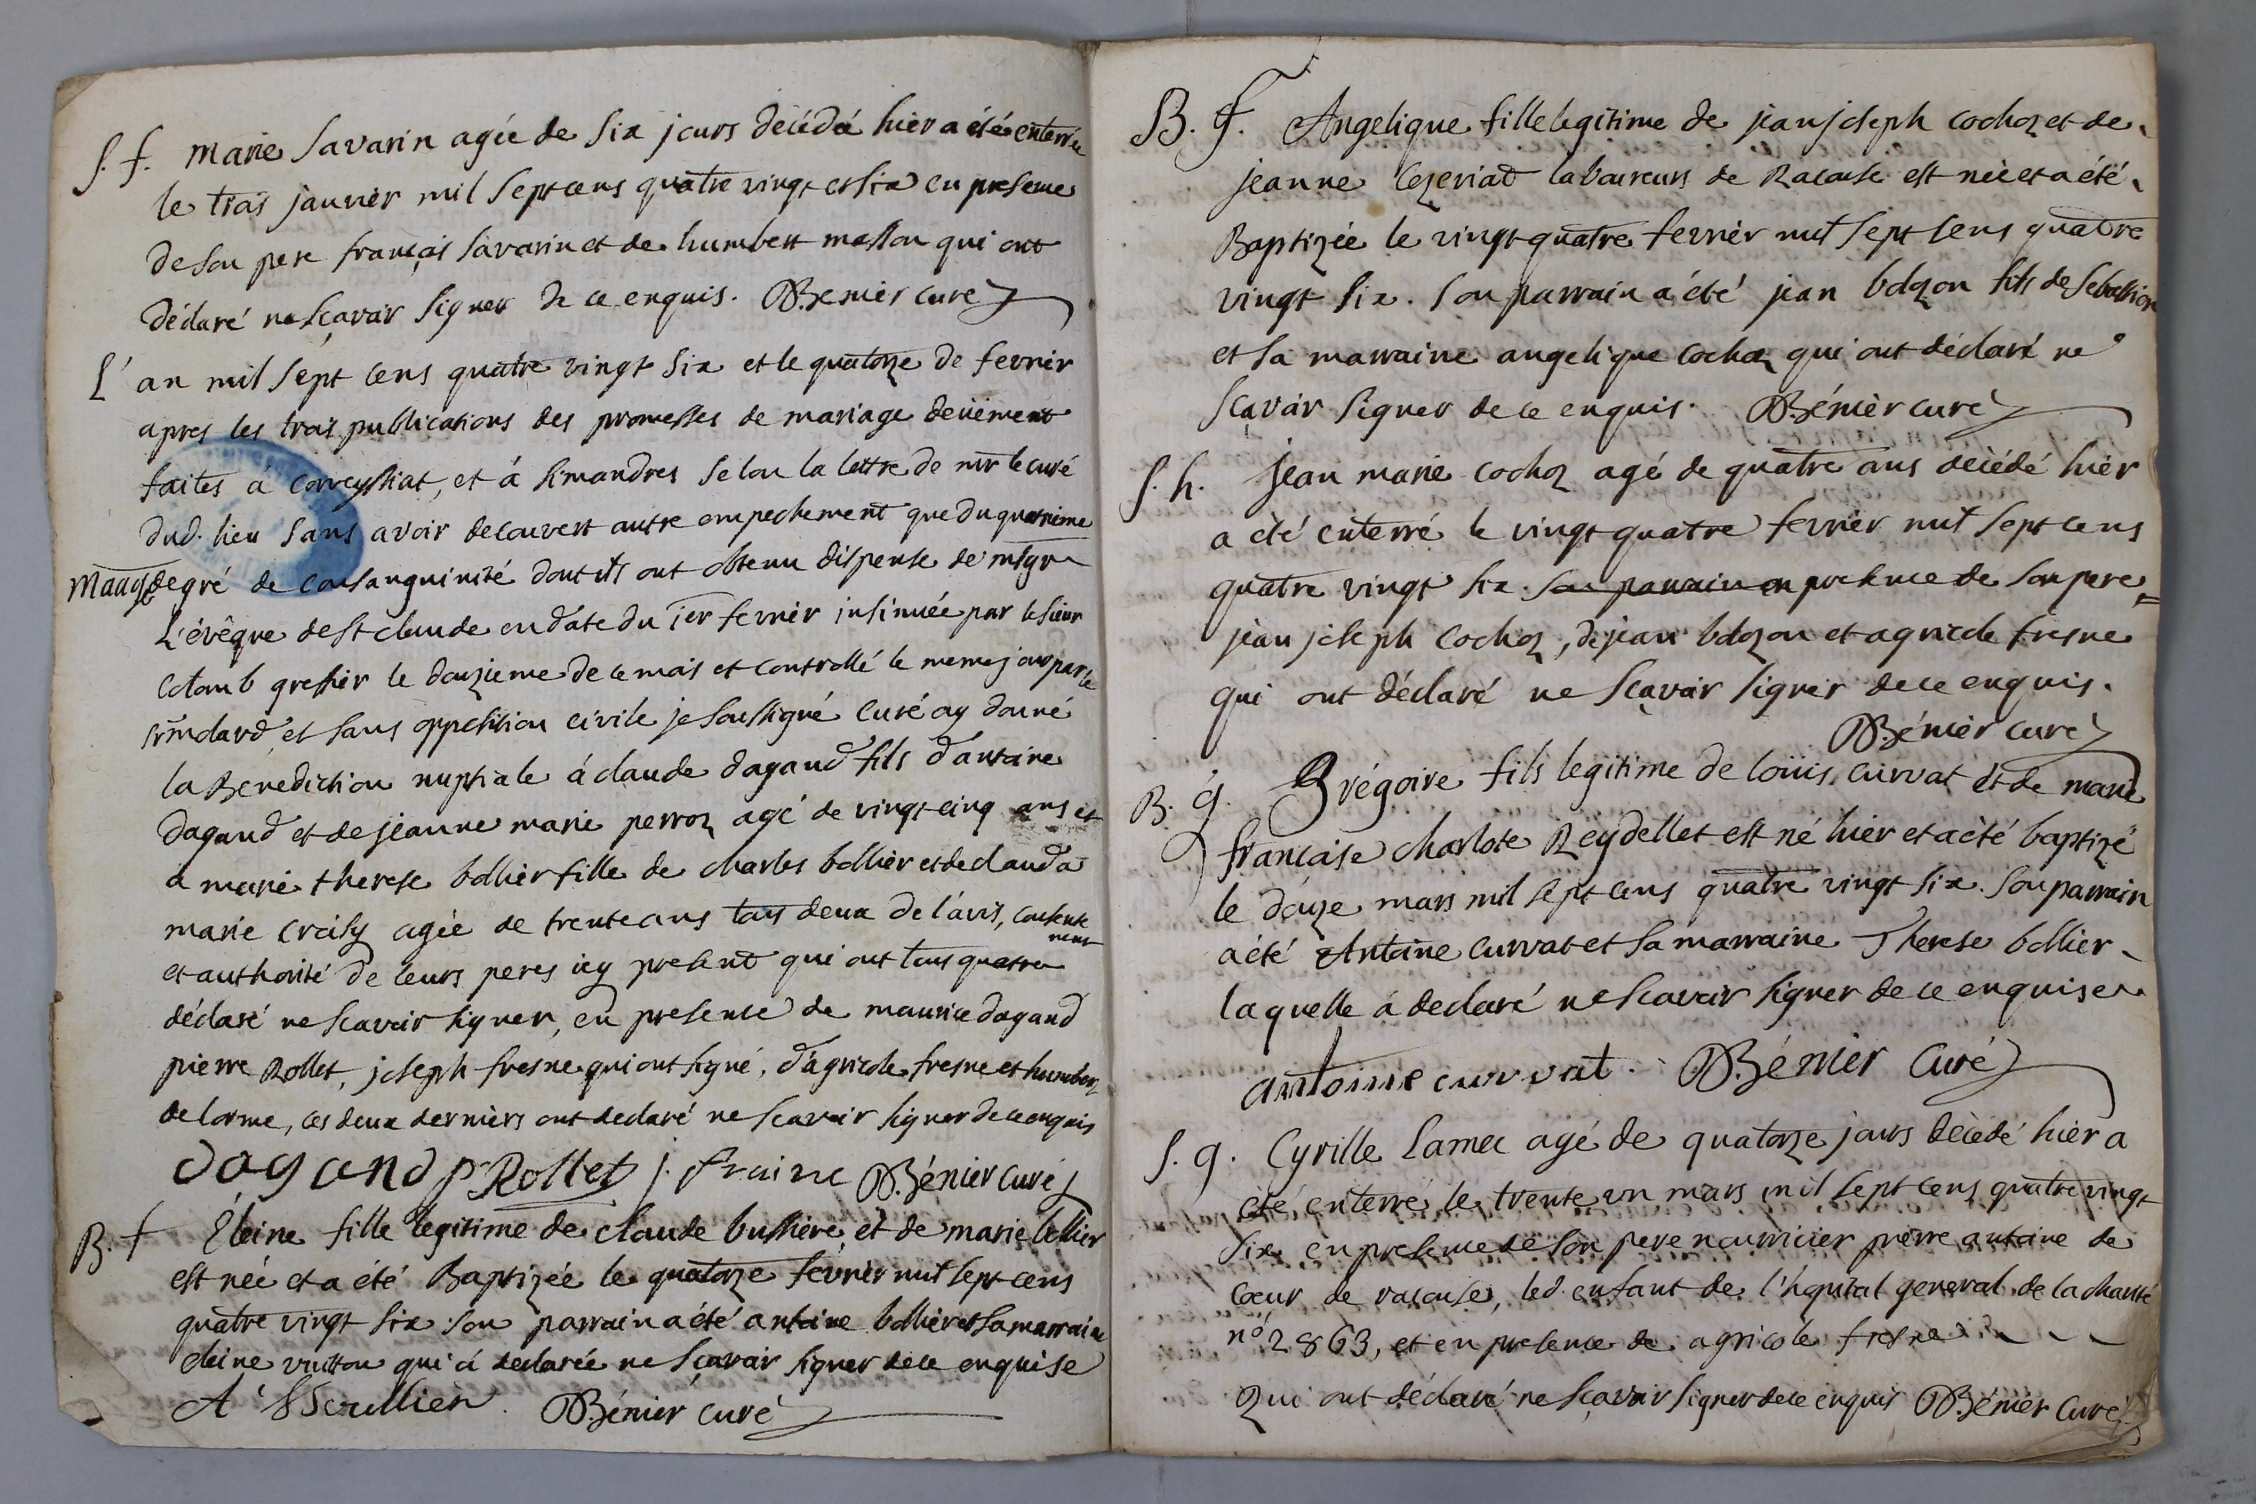 S. f. Marie Savarin agée de six jours décédée hier a été enterrée
le trois janvier mil sept cens quatre vingt et six en presence
de son pere françois savarin et de humbert masson qui ont
déclaré ne sçavoir signer de ce enquis. Bénier curé
L'an mil sept cens quatre vingt six et le quatorze de fevrier
apres les trois publications des promesses de mariage deüement
faites à corveyssiat, et à simandres selon la lettre de mr le curé
dud. lieu sans avoir decouvert autre empechement que du quatrieme
degré de consanguinité dont ils ont obtenu dispense de msgr
L'évêque de st claude en date du 1er fevrier insinuée par le sieur
Colomb greffier le douzieme de ce mois et controllé le meme jour par le
et sans opposition civile je soussigné curé ay donné
la Benediction nuptiale à claude dagand fils d'antoine
dagand et de jeanne marie perroz agé de vingt-cinq ans et
a marie therese bollier fille de charles bollier et de clauda
marie croisy agée de trente ans tous deux de l'avis, consentement
et authorité de leurs peres icy present qui ont tous quatre
déclaré ne scavoir signer, en presence de maurice dagand
pierre Rollet, joseph fresne qui ont signé, d'agricole fresne et humbert
delorme, ces deux derniers ont declaré ne scavoir signer de ce enquis
dagand p Rollet j. fraine Bénier curé
B. f Eleine fille legitime de claude bussiere, et de marie bollier
est née et a été Baptizée le quatorze fevrier mil sept cens
quatre vingt six son parrain a été antoine bollier et sa marraine
eleine vuitton qui à declarée ne sçavoir signer de ce enquise
A Boullier. Bénier curé
B. f. Angelique fille legitime de jean joseph cochoz et de
jeanne Cezeriat laboureurs de Racouse est née et a été
Baptizée le vingt-quatre fevrier mil sept cens quatre
vingt six. son parrain a été jean bozon fils de sebastien
et sa marraine angelique cochoz qui ont déclaré ne
sçavoir signer de ce enquis. Bénier curé
S. h. Jean marie cochoz agé de quatre ans décédé hier
a été enterré le vingt quatre fevrier mil sept cens
quatre vingt six. son parrain en presence de son pere
jean joseph cochoz, de jean bozon et agricole fresne
qui ont déclaré ne sçavoir signer de ce enquis.
Bénier curé
B. g. Grégoire fils legitime de loüis curvat et de marie
françoise charlote Reydellet est né hier et a été baptizé
le douze mars mil sept cens quatre vingt six. son parrain
a été Antoine curvat et sa marraine Therese bollier
laquelle à declaré ne scavoir signer de ce enquise
antoine curvat. Bénier Curé
S. g. Cyrille Lamec agé de quatorze jours décédé hier a
été enterré le trente un mars mil sept cens quatre vingt
six en presence de son pere nourricier pierre antoine de
Coeur de racouse, led. enfant de l'hopital general de la charité
no. 2863, et en presence de agricole fresne
qui ont déclaré ne sçavoir signer de ce enquis Bénier Curé